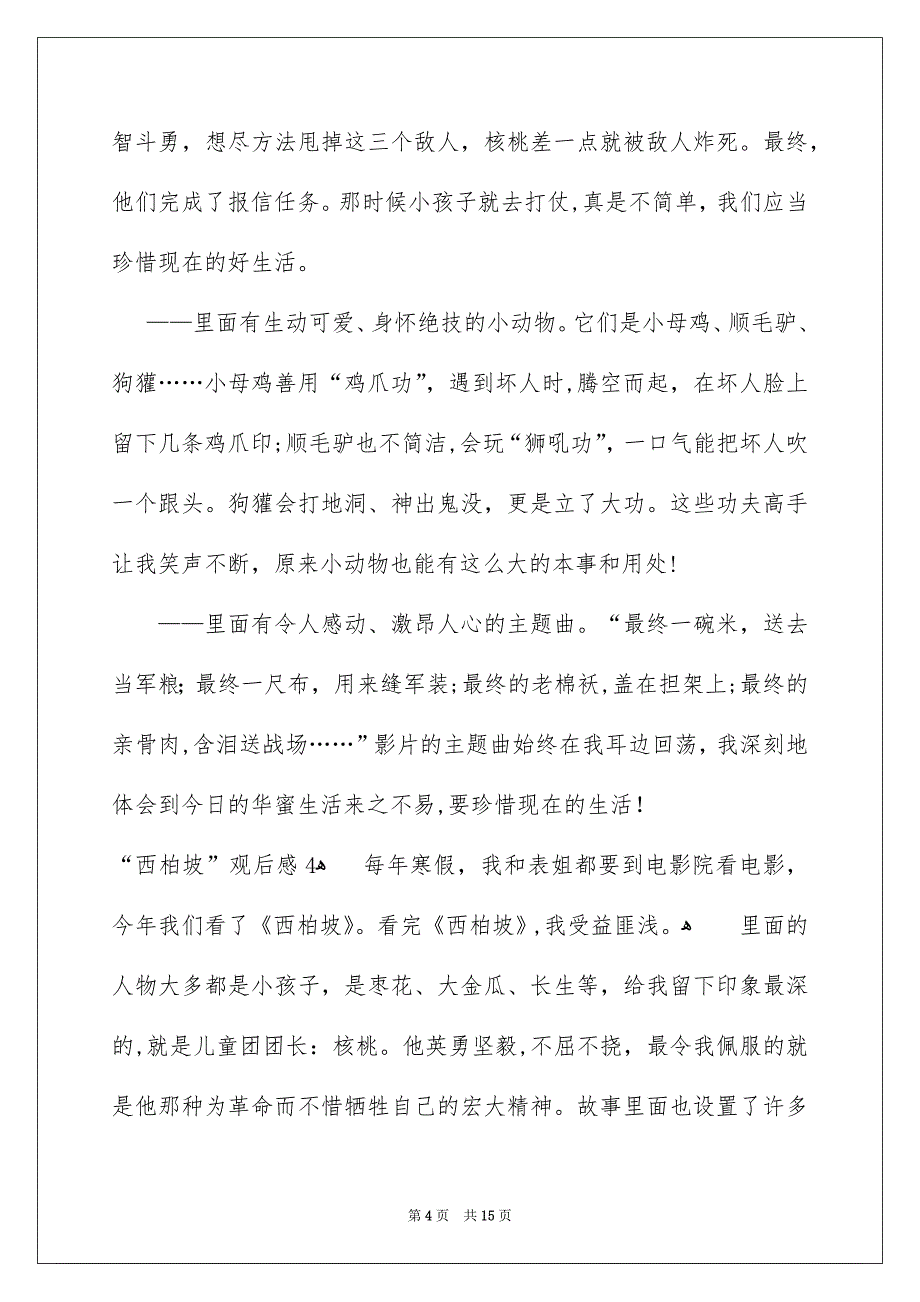 智斗勇，想尽方法甩掉这三个敌人，核桃差一点就被敌人炸死。最终，
他们完成了报信任务。那时候小孩子就去打仗,真是不简单，我们应当
珍惜现在的好生活。
——里面有生动可爱、身怀绝技的小动物。它们是小母鸡、顺毛驴、
狗獾……小母鸡善用“鸡爪功”，遇到坏人时,腾空而起，在坏人脸上
留下几条鸡爪印;顺毛驴也不简洁,会玩“狮吼功”，一口气能把坏人吹
一个跟头。狗獾会打地洞、神出鬼没，更是立了大功。这些功夫高手
让我笑声不断，原来小动物也能有这么大的本事和用处!
——里面有令人感动、激昂人心的主题曲。“最终一碗米，送去
当军粮；最终一尺布，用来缝军装;最终的老棉袄,盖在担架上;最终的
亲骨肉,含泪送战场……”影片的主题曲始终在我耳边回荡，我深刻地
体会到今日的华蜜生活来之不易,要珍惜现在的生活！
“西柏坡”观后感4ﻫ 每年寒假，我和表姐都要到电影院看电影，
今年我们看了《西柏坡》。看完《西柏坡》,我受益匪浅。ﻫ 里面的
人物大多都是小孩子，是枣花、大金瓜、长生等，给我留下印象最深
的,就是儿童团团长：核桃。他英勇坚毅,不屈不挠，最令我佩服的就
是他那种为革命而不惜牺牲自己的宏大精神。故事里面也设置了许多
第 4 页 共 15 页